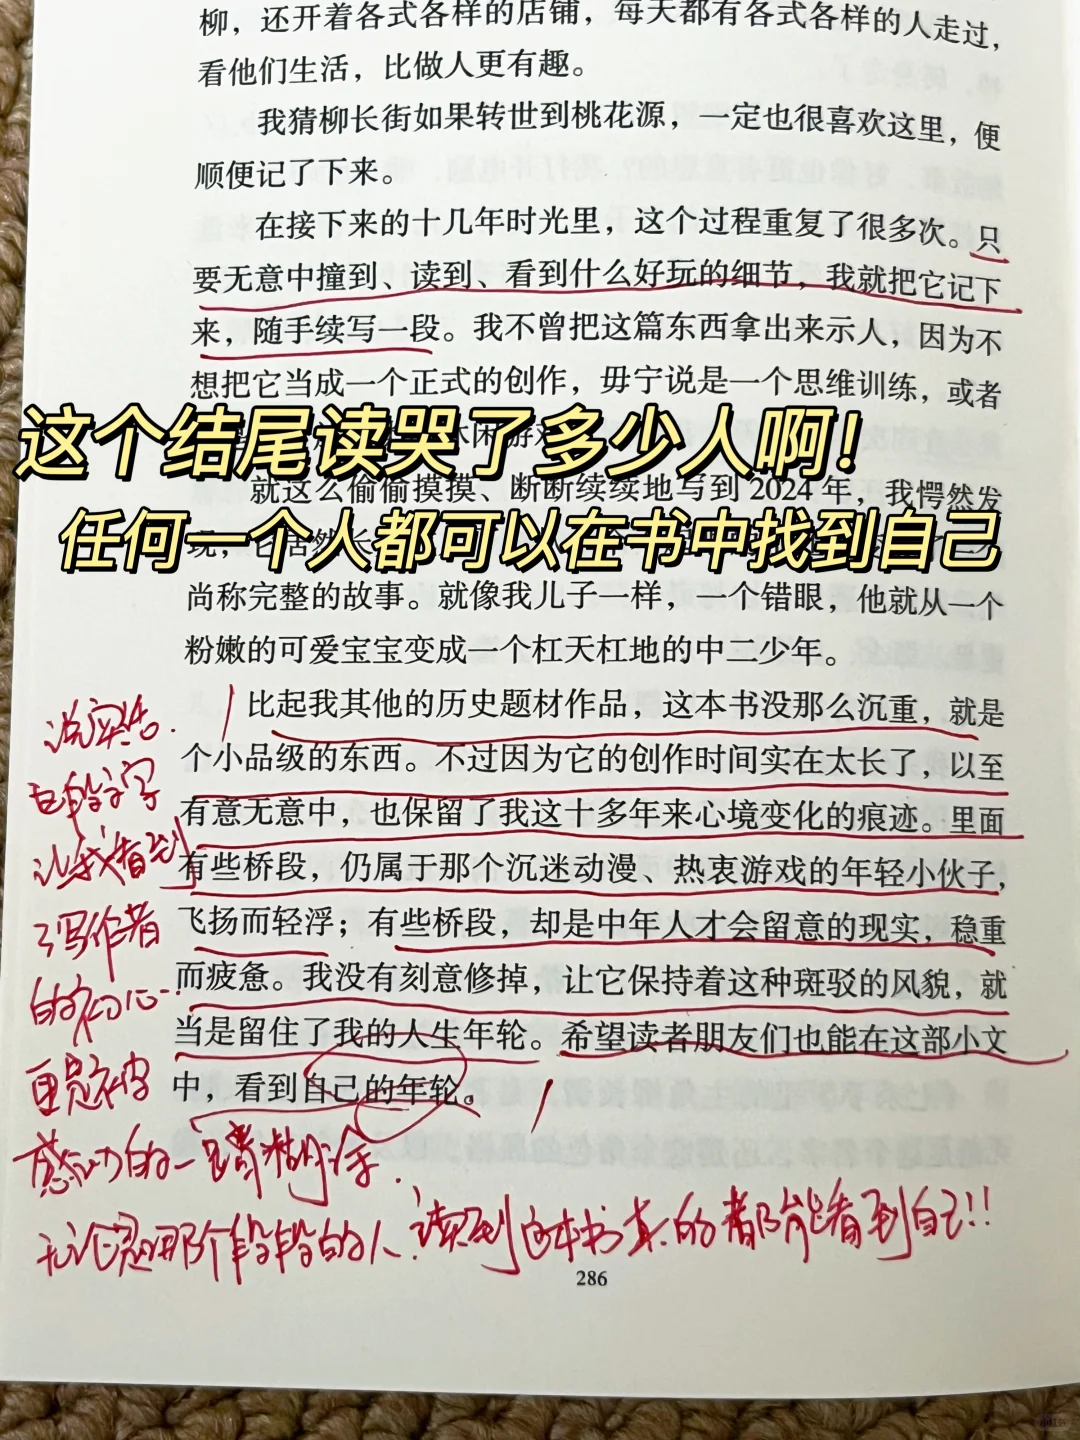 柳，还开着各式各样的店铺，每天都有各式各样的人走过，
看他们生活，比做人更有趣。
我猜柳长街如果转世到桃花源，一定也很喜欢这里，便
顺便记了下来。
在接下来的十几年时光里，这个过程重复了很多次。只
要无意中撞到、读到、看到什么好玩的细节，我就把它记下
来，随手续写一段。我不曾把这篇东西拿出来示人，因为不
想把它当成一个正式的创作，毋宁说是一个思维训练，或者
休闲游戏
这个结尾读哭了多少人啊！
就这么偷偷摸摸、断断续续地写到 2024 年，我愕然发
现，它居然长
任何一个人都可以在书中找到自己
尚称完整的故事。就像我儿子一样，一个错眼，他就从一个
粉嫩的可爱宝宝变成一个杠天杠地的中二少年。
比起我其他的历史题材作品，这本书没那么沉重，就是
个小品级的东西。不过因为它的创作时间实在太长了，以至
有意无意中，也保留了我这十多年来心境变化的痕迹。里面
有些桥段，仍属于那个沉迷动漫、热衷游戏的年轻小伙子，
飞扬而轻浮；有些桥段，却是中年人才会留意的现实，稳重
而疲惫。我没有刻意修掉，让它保持着这种斑驳的风貌，就
当是留住了我的人生年轮。希望读者朋友们也能在这部小文
中，看到自己的年轮。
说实话.
这段文字
让我看到
了写作者
的初心.
更是被
感动的一塌糊涂.
无论是哪个阶段的人.读到这本书真的都能看到自己!!
286